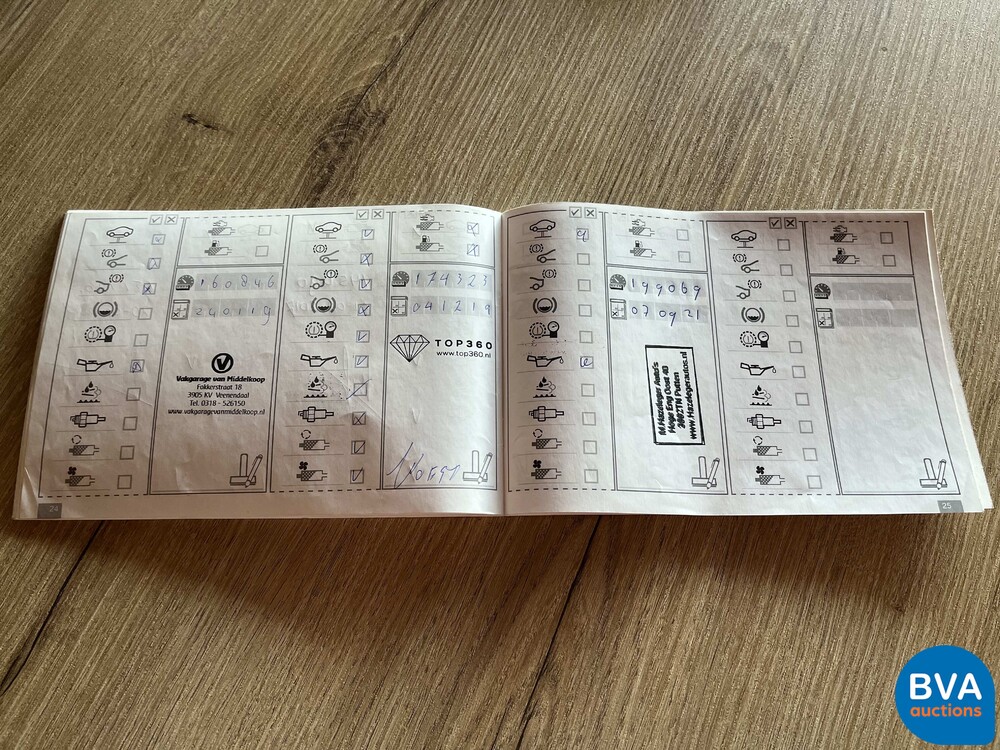 160846
240119
V
Vakgarage van Middelkoop
Fokkerstraat 18
3905 KV Veenendaal
Tel. 0318 - 526150
www.vakgaragevanmiddelkoop.nl
24
174323
041219
TOP360
www.top360.nl
199069
070921
M Hazeleger Auto's
Hoge Eng Oost 40
www.Hazelegerautos.nl
25
BVA
auctions